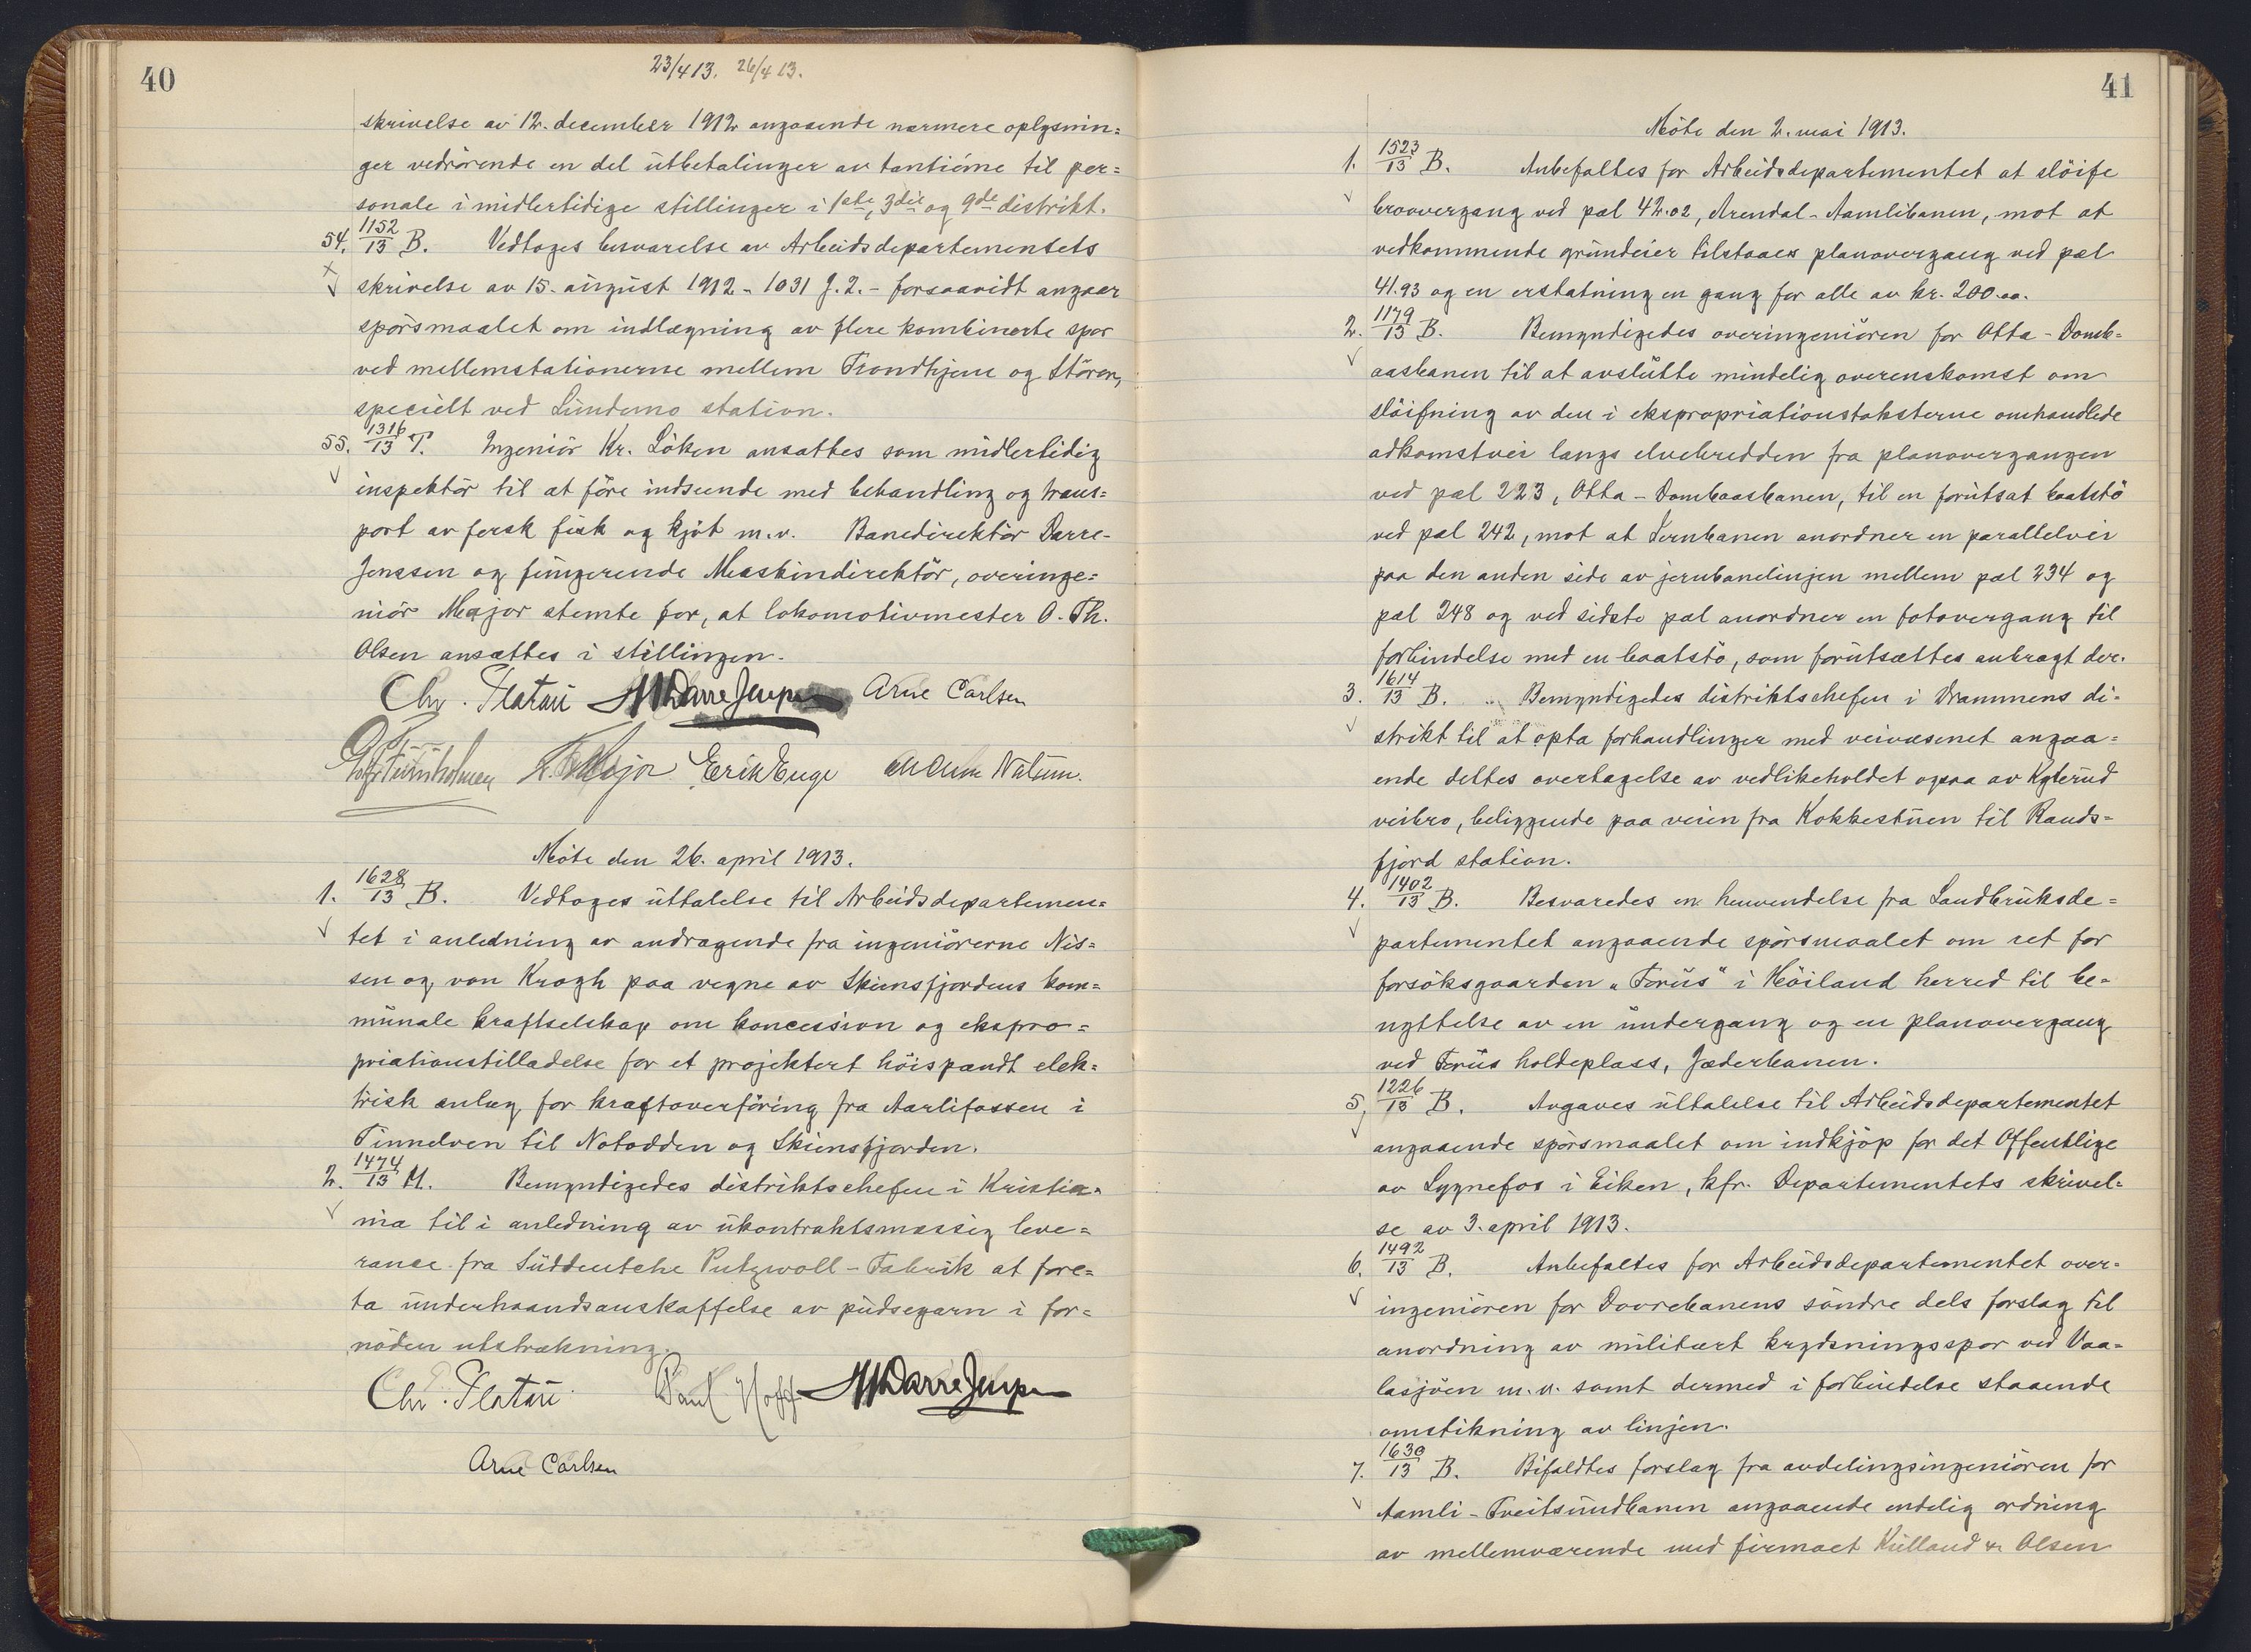 40
23/4 13. 26/4 13.
skrivelse av 12. december 1912 angaaende nærmere oplysnin=
ger vedrörende en del utbetalinger av tantième til per=
sonale i midlertidige stillinger i 1ste, 3die og 9de distrikt.
54. 1152/13 B. Vedtoges besvarelse av Arbeidsdepartementets
skrivelse av 15. august 1912 - 1031 J. 2. - forsaavidt angaar
spörsmaalet om indlægning av flere kombinerte spor
ved mellemstationerne mellem Trondhjem og Stören,
specielt ved Lundemo station.
55. 1316/13 T. Ingeniör Kr. Löken ansattes som midlertidig
inspektör til at före indseende med behandling og trans=
port av fersk fisk og kjöt m.v. Banedirektör Darre-
Jenssen og fungerende Maskindirektör, overinge=
niör Major stemte for, at lokomotivmester O. Th.
Olsen ansættes i stillingen.
Chr. Platou Darre Jenssen Arne Carlsen
Major Erik Enge Natum.
Möte den 26. april 1913.
1. 1628/13 B. Vedtoges uttalelse til Arbeidsdepartemen=
tet i anledning av andragende fra ingeniörerne Nis=
sen og von Krogh paa vegne av Skiensfjordens kom=
munale kraftselskap om koncession og ekspro=
priationstilladelse for et projektert höispændt elek=
trisk anlæg for kraftoverföring fra Aarlifossen i
Tinnelven til Notodden og Skiensfjorden.
2. 1474/13 M. Bemyndigedes distriktschefen i Kristia=
nia til i anledning av ukontraktsmæssig leve=
rance fra Süddeutche Putzwoll-Fabrik at fore=
ta underhaandsanskaffelse av pudsegarn i for=
nöden utstrækning.
Chr. Platou Paul Hoff Darre Jenssen
Arne Carlsen
41
Möte den 2. mai 1913.
1. 1523/13 B. Anbefaltes for Arbeidsdepartementet at slöife
broovergang ved pæl 42.02, Arendal-Aamlibanen, mot at
vedkommende grundeier tilstaaes planovergang ved pæl
41.93 og en erstatning en gang for alle av kr. 200.oo.
2. 1179/13 B. Bemyndigedes overingeniören for Otta-Domb=
aasbanen til at avslutte mindelig overenskomst om
slöifning av den i ekspropriationstaksterne omhandlede
adkomstvei langs elvebredden fra planovergangen
ved pæl 223, Otta-Dombaasbanen, til en forutsat baatstö
ved pæl 242, mot at Jernbanen anordner en parallelvei
paa den anden side av jernbanelinjen mellem pæl 234 og
pæl 248 og ved sidste pæl anordner en fotovergang til
forbindelse med en baatstö, som forutsættes anbragt der.
3. 1614/13 B. Bemyndigedes distriktschefen i Drammens di=
strikt til at opta forhandlinger med veivæsenet angaa=
ende dettes overtagelse av vedlikeholdet ogsaa av Kglerud
veibro, beliggende paa veien fra Kokkestuen til Rands=
fjord station.
4. 1402/13 B. Besvaredes en henvendelse fra Landbruksde=
partementet angaaende spörsmaalet om ret for
forsöksgaarden "Forus" i Höiland herred til be=
nyttelse av en undergang og en planovergang
ved Forus holdeplass, Jæderbanen.
5. 1226/13 B. Avgaves uttalelse til Arbeidsdepartementet
angaaende spörsmaalet om indkjöp for det Offentlige
av Lygnefos i Eiken, kfr. Departementets skrivel=
se av 3. april 1913.
6. 1492/13 B. Anbefaltes for Arbeidsdepartementet over=
ingeniören for Dovrebanens söndre dels forslag til
anordning av militært krydsningsspor ved Vaa=
lasjöen m.v. samt dermed i forbindelse staaende
omstikning av linjen.
7. 1630/13 B. Bifaldtes forslag fra avdelingsingeniören for
Aamli-Treitsundbanen angaaende endelig ordning
av mellemværende med firmaet Kielland & Olsen